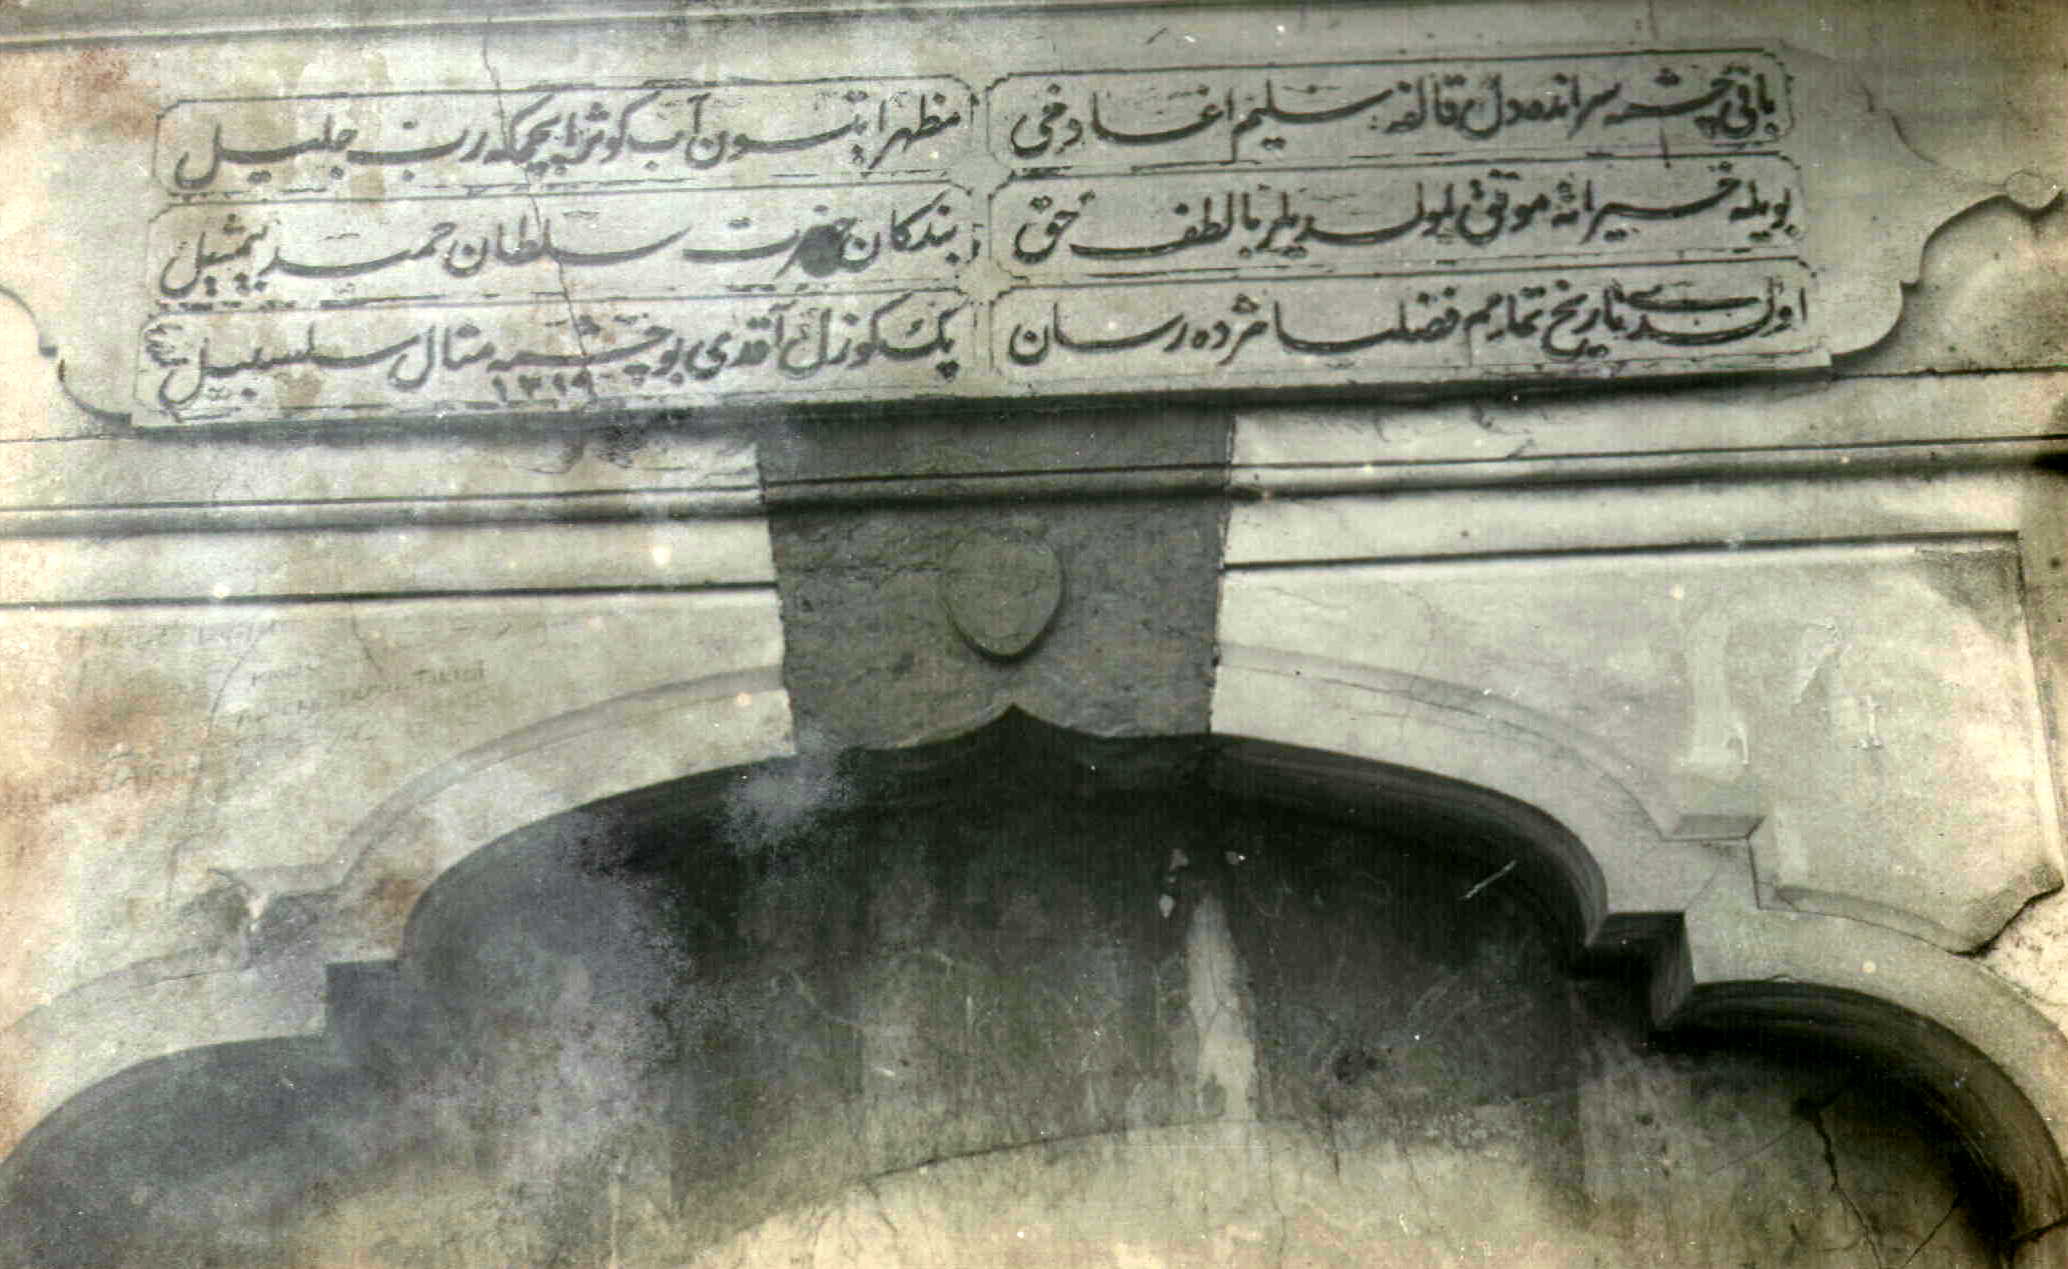 بانئ چشمه سراندەدل قالفه سليم اغا دخی
مظهر ايتسون آب كوثر ايچمكه رب جليل
بويله خيراته موفق اولديلر با لطف حق
بندكان حضرت سلطان حميد بيمثيل
اولدی تاريخ تماميم فضليا مژده رسان
پك كوزل آقدی بو چشمه مثال سلسبيل
١٣١٩